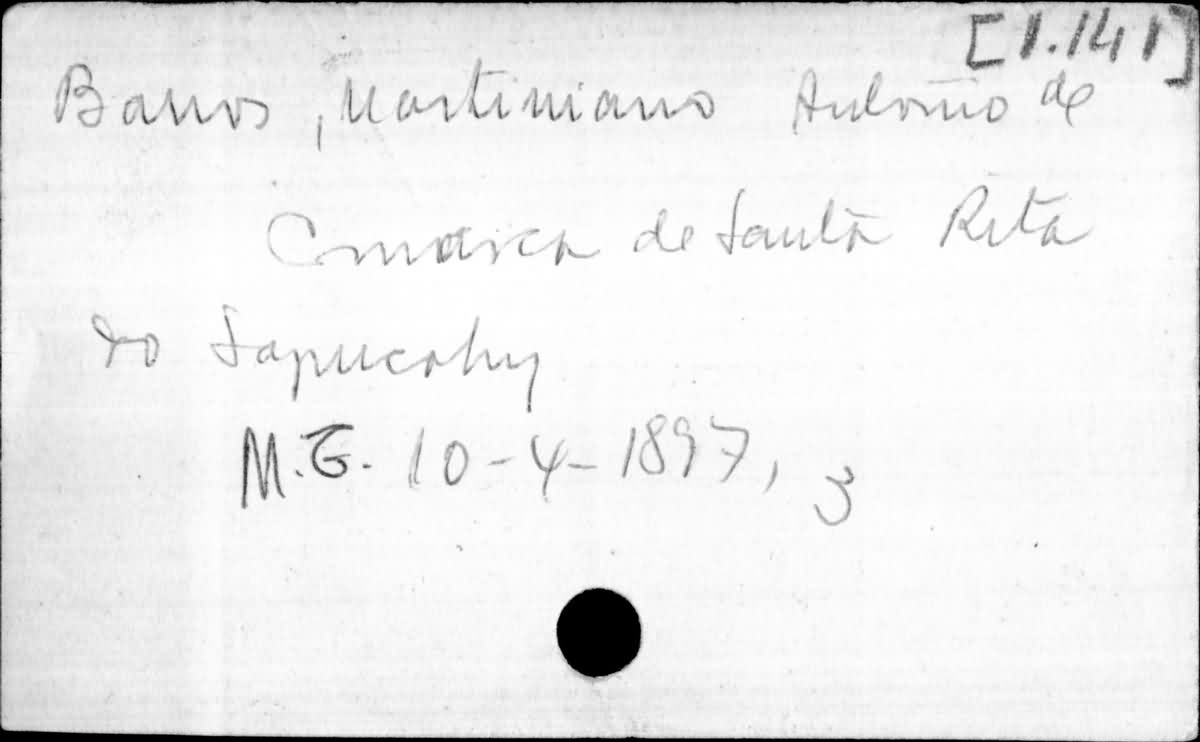 [1.141]
Barros, Martiniano Antonio de
Comarca de Santa Rita
do Sapucahy
M.G. 10-4-1897, 3